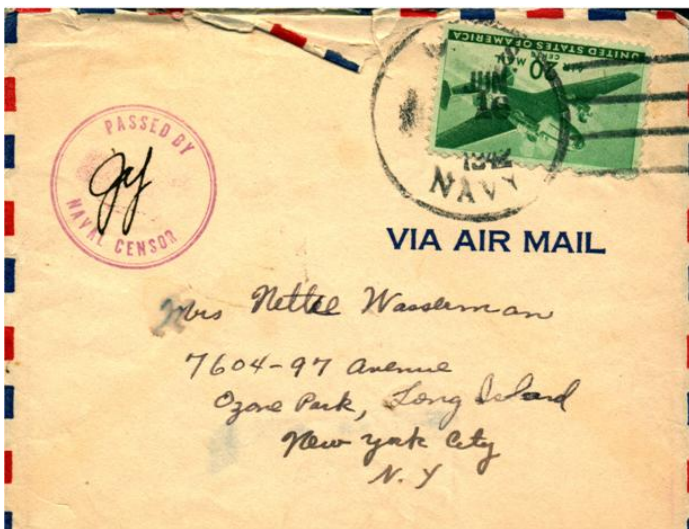 PASSED BY
NAVAL CENSOR
UNITED STATES OF AMERICA
AIR MAIL
20 CENTS
JUN
16
1942
NAVY
VIA AIR MAIL
Mrs Nettie Wasserman
7604-97 Avenue
Ozone Park, Long Island
New York City
N.Y